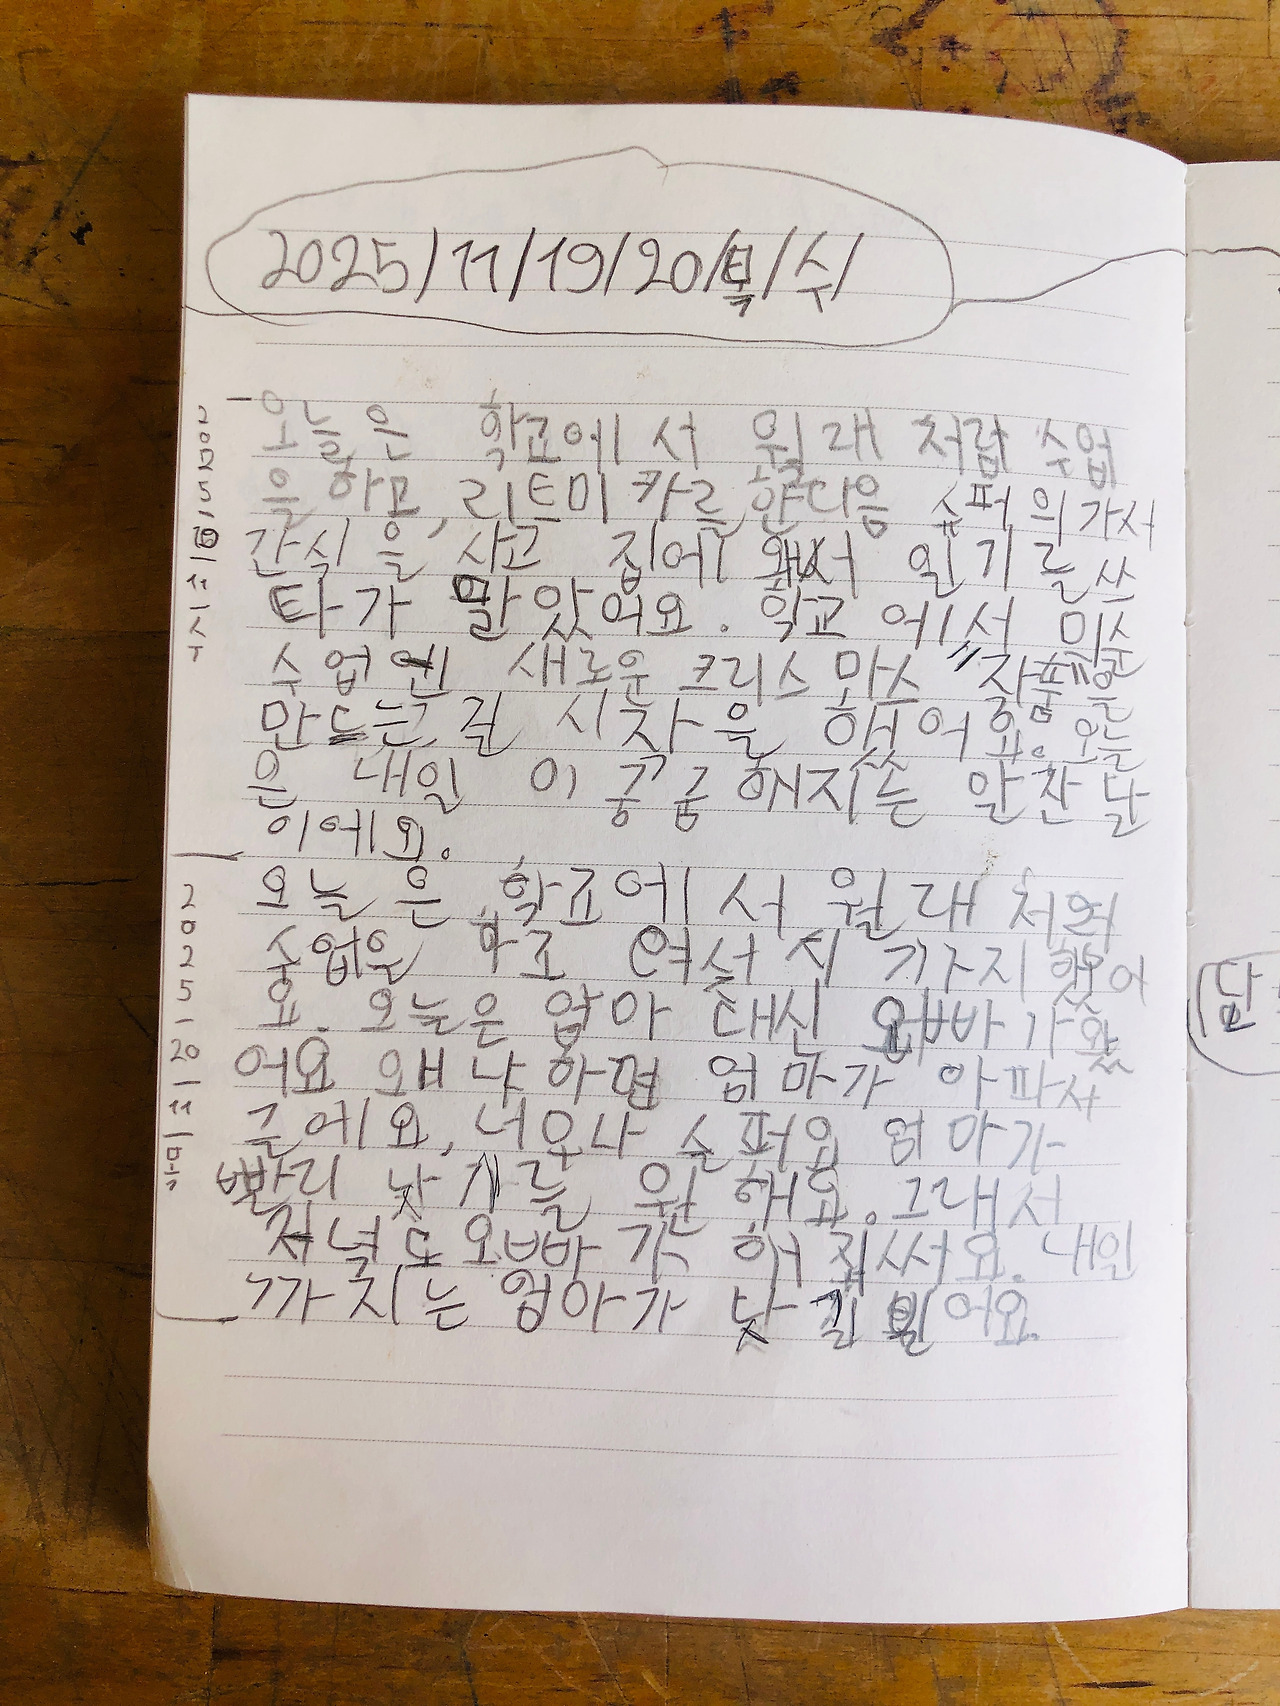 2025/11/19/20/목/수/
오늘은 학교에서 월래 처럼 수업
을 하고, 리트미카를 한다음 슈퍼의가서
간식을 사고 집에 왜서 일기를 쓰
타가 말았어요. 학교 에서 미슈
수업엔 새로운 크리스마스 작품을
만드는걸 시작을 했어요. 오늘
은 내일 이 궁금해지는 알찬 날
이에요.
2025-11-수
오늘은 학교에서 월래 처럼
숭업은 하고 여섯 시 까지 했어
요. 오늘은 엄마 대신 오빠가 왔
어요 왜냐하면 엄마가 아파서
근에요, 너우나 슬퍼요 엄마가
빨리 낫기를 원해요. 그래서
저녁도 오빠가 해줬써요. 내일
까지는 엄마가 낫길 빌어요.
2025-20-11-목
답